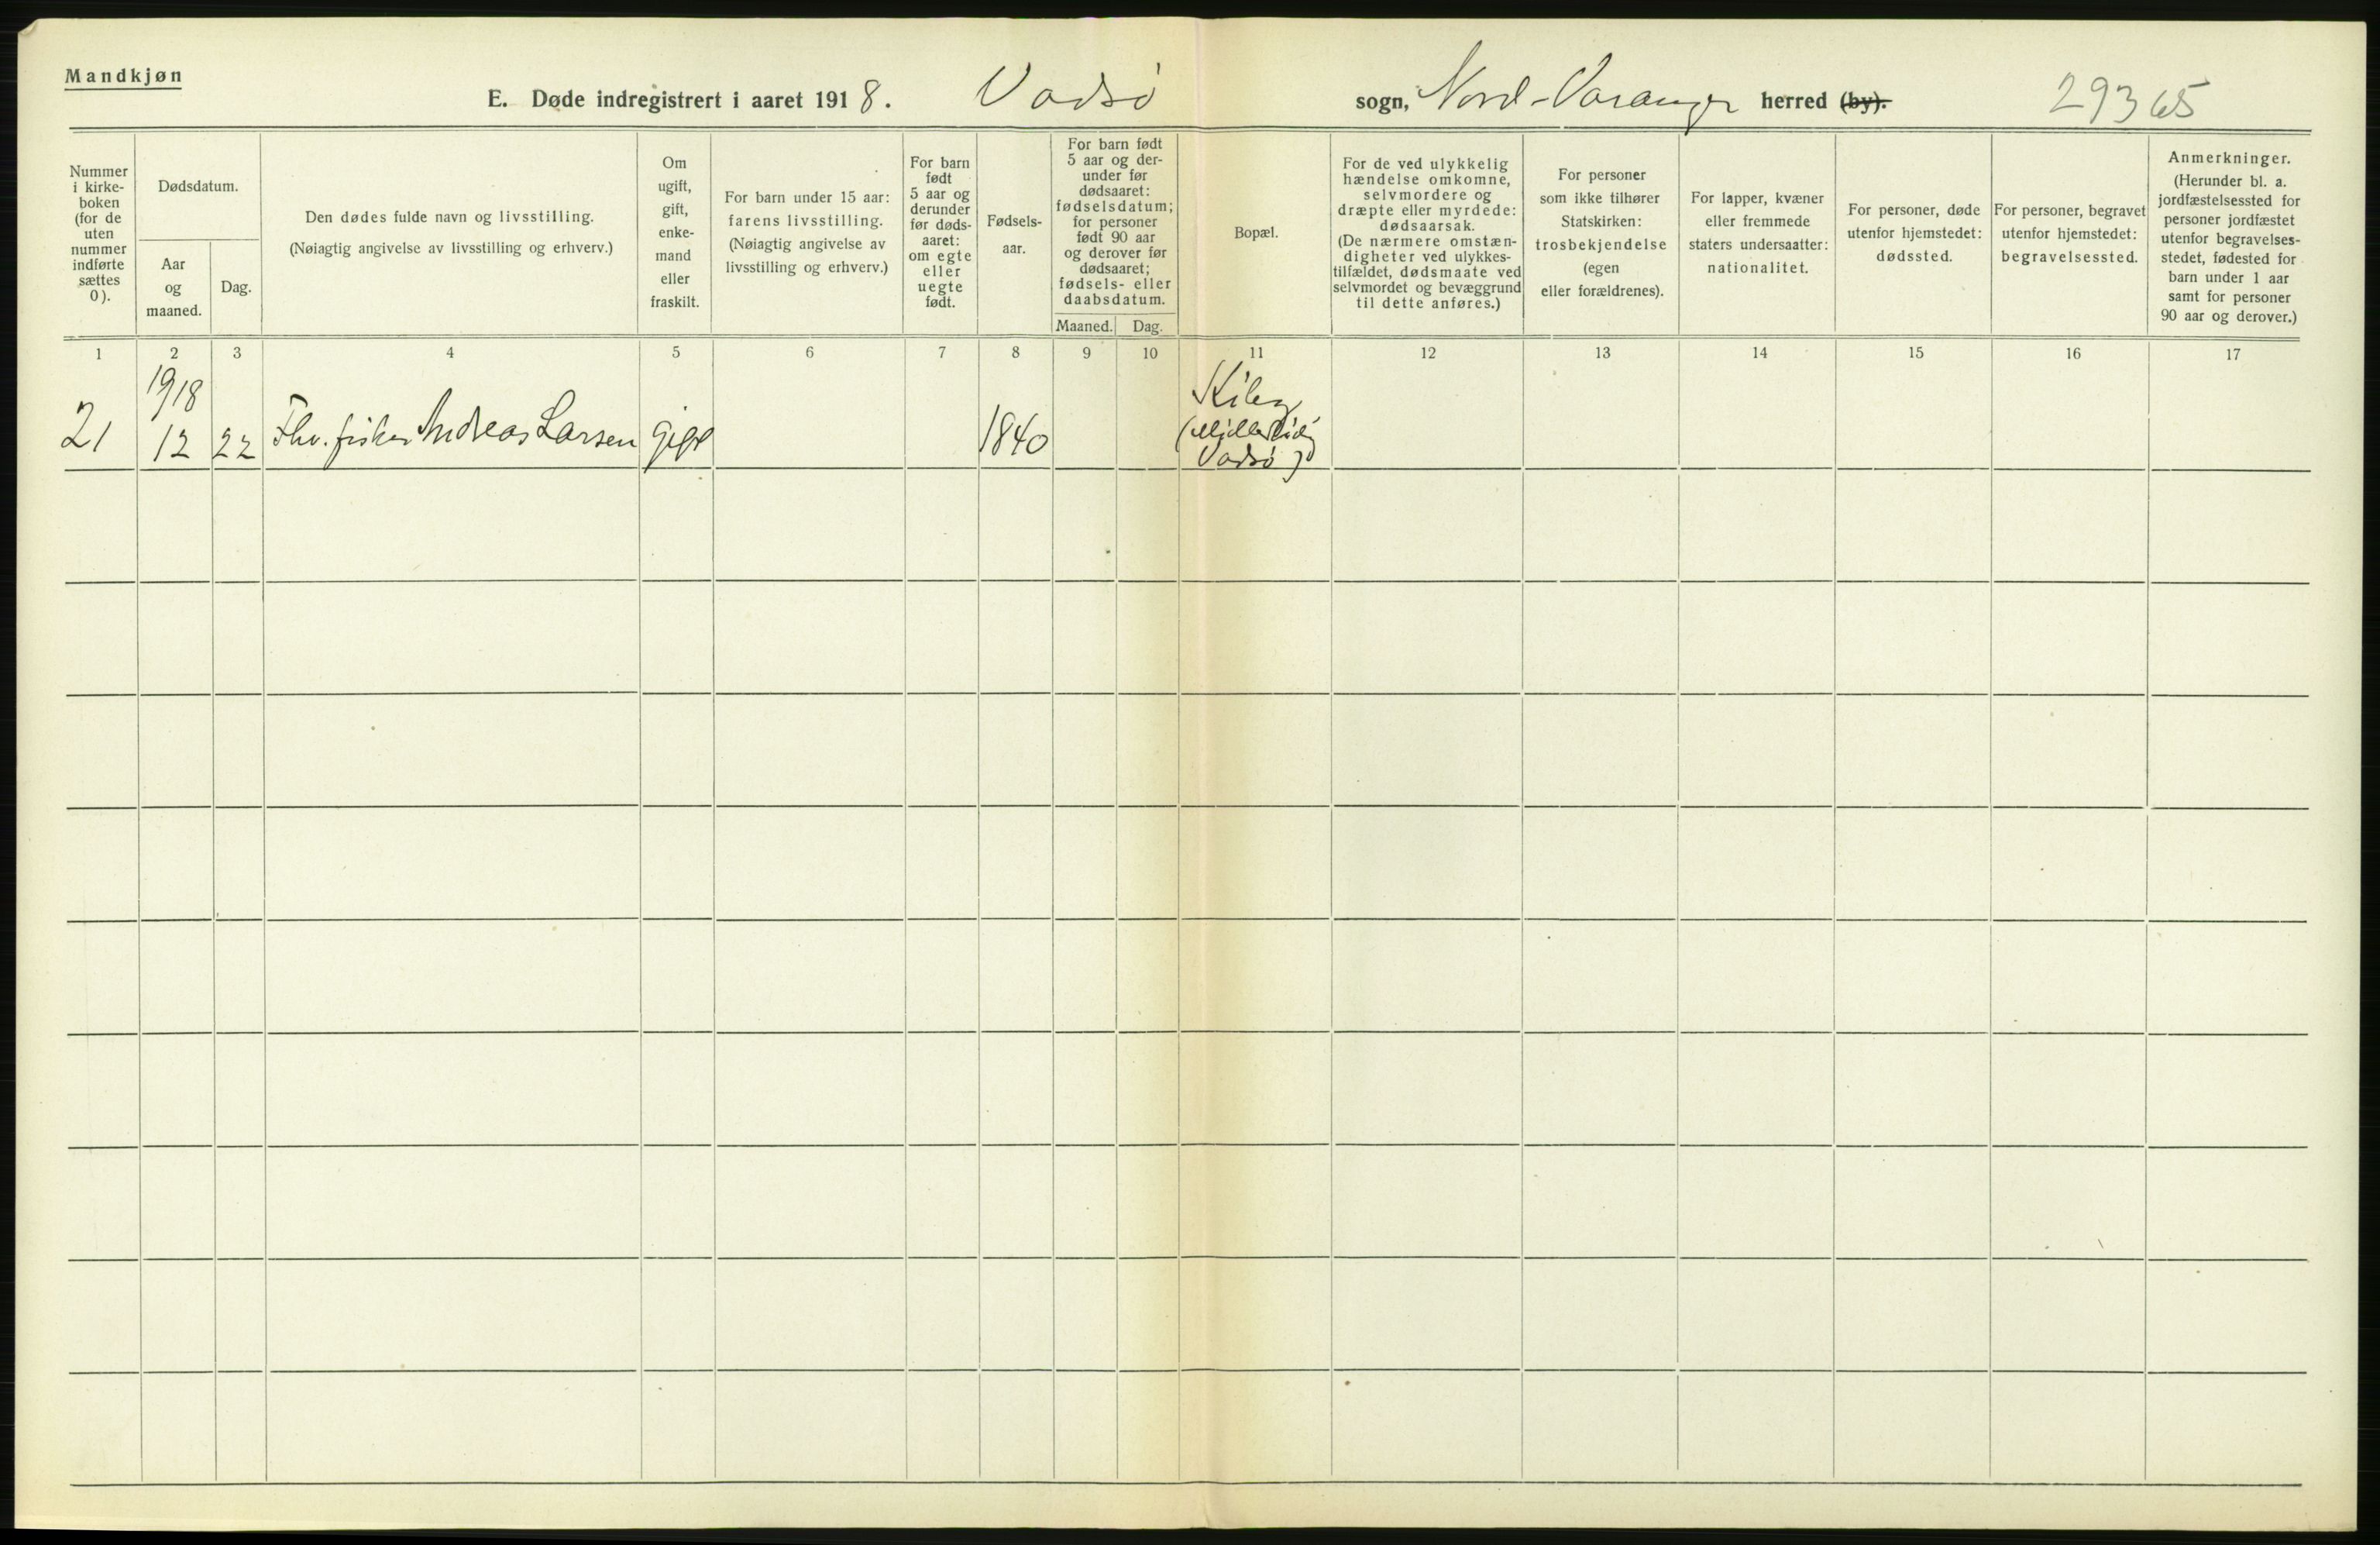 Mandkjøn
E. Døde indregistrert i aaret 1918. Vadsø sogn, Nord-Varanger herred (by). 29365
Nummer i kirke-boken (for de uten nummer indførte sættes 0).
Dødsdatum.
Aar og maaned.
Dag.
Den dødes fulde navn og livsstilling.
(Nøiagtig angivelse av livsstilling og erhverv.)
Om ugift, gift, enke-mand eller fraskilt.
For barn under 15 aar: farens livsstilling.
(Nøiagtig angivelse av livsstilling og erhverv.)
For barn født 5 aar og derunder før døds-aaret: om egte eller uegte født.
Fødsels-aar.
For barn født 5 aar og der-under før dødsaaret: fødselsdatum; for personer født 90 aar og derover før dødsaaret; fødsels- eller daabsdatum.
Maaned. Dag.
Bopæl.
For de ved ulykkelig hændelse omkomne, selvmordere og dræpte eller myrdede: dødsaarsak.
(De nærmere omstæn-digheter ved ulykkes-tilfældet, dødsmaate ved selvmordet og bevæggrund til dette anføres.)
For personer som ikke tilhører Statskirken: trosbekjendelse (egen eller forældrenes).
For lapper, kvæner eller fremmede staters undersaatter: nationalitet.
For personer, døde utenfor hjemstedet: dødssted.
For personer, begravet utenfor hjemstedet: begravelsessted.
Anmerkninger.
(Herunder bl. a. jordfæstelsessted for personer jordfæstet utenfor begravelses-stedet, fødested for barn under 1 aar samt for personer 90 aar og derover.)
1 2 3 4 5 6 7 8 9 10 11 12 13 14 15 16 17
1918
21 12 22 Fhv. fisker Andreas Larsen gift 1840 Kiberg
Vadsø)